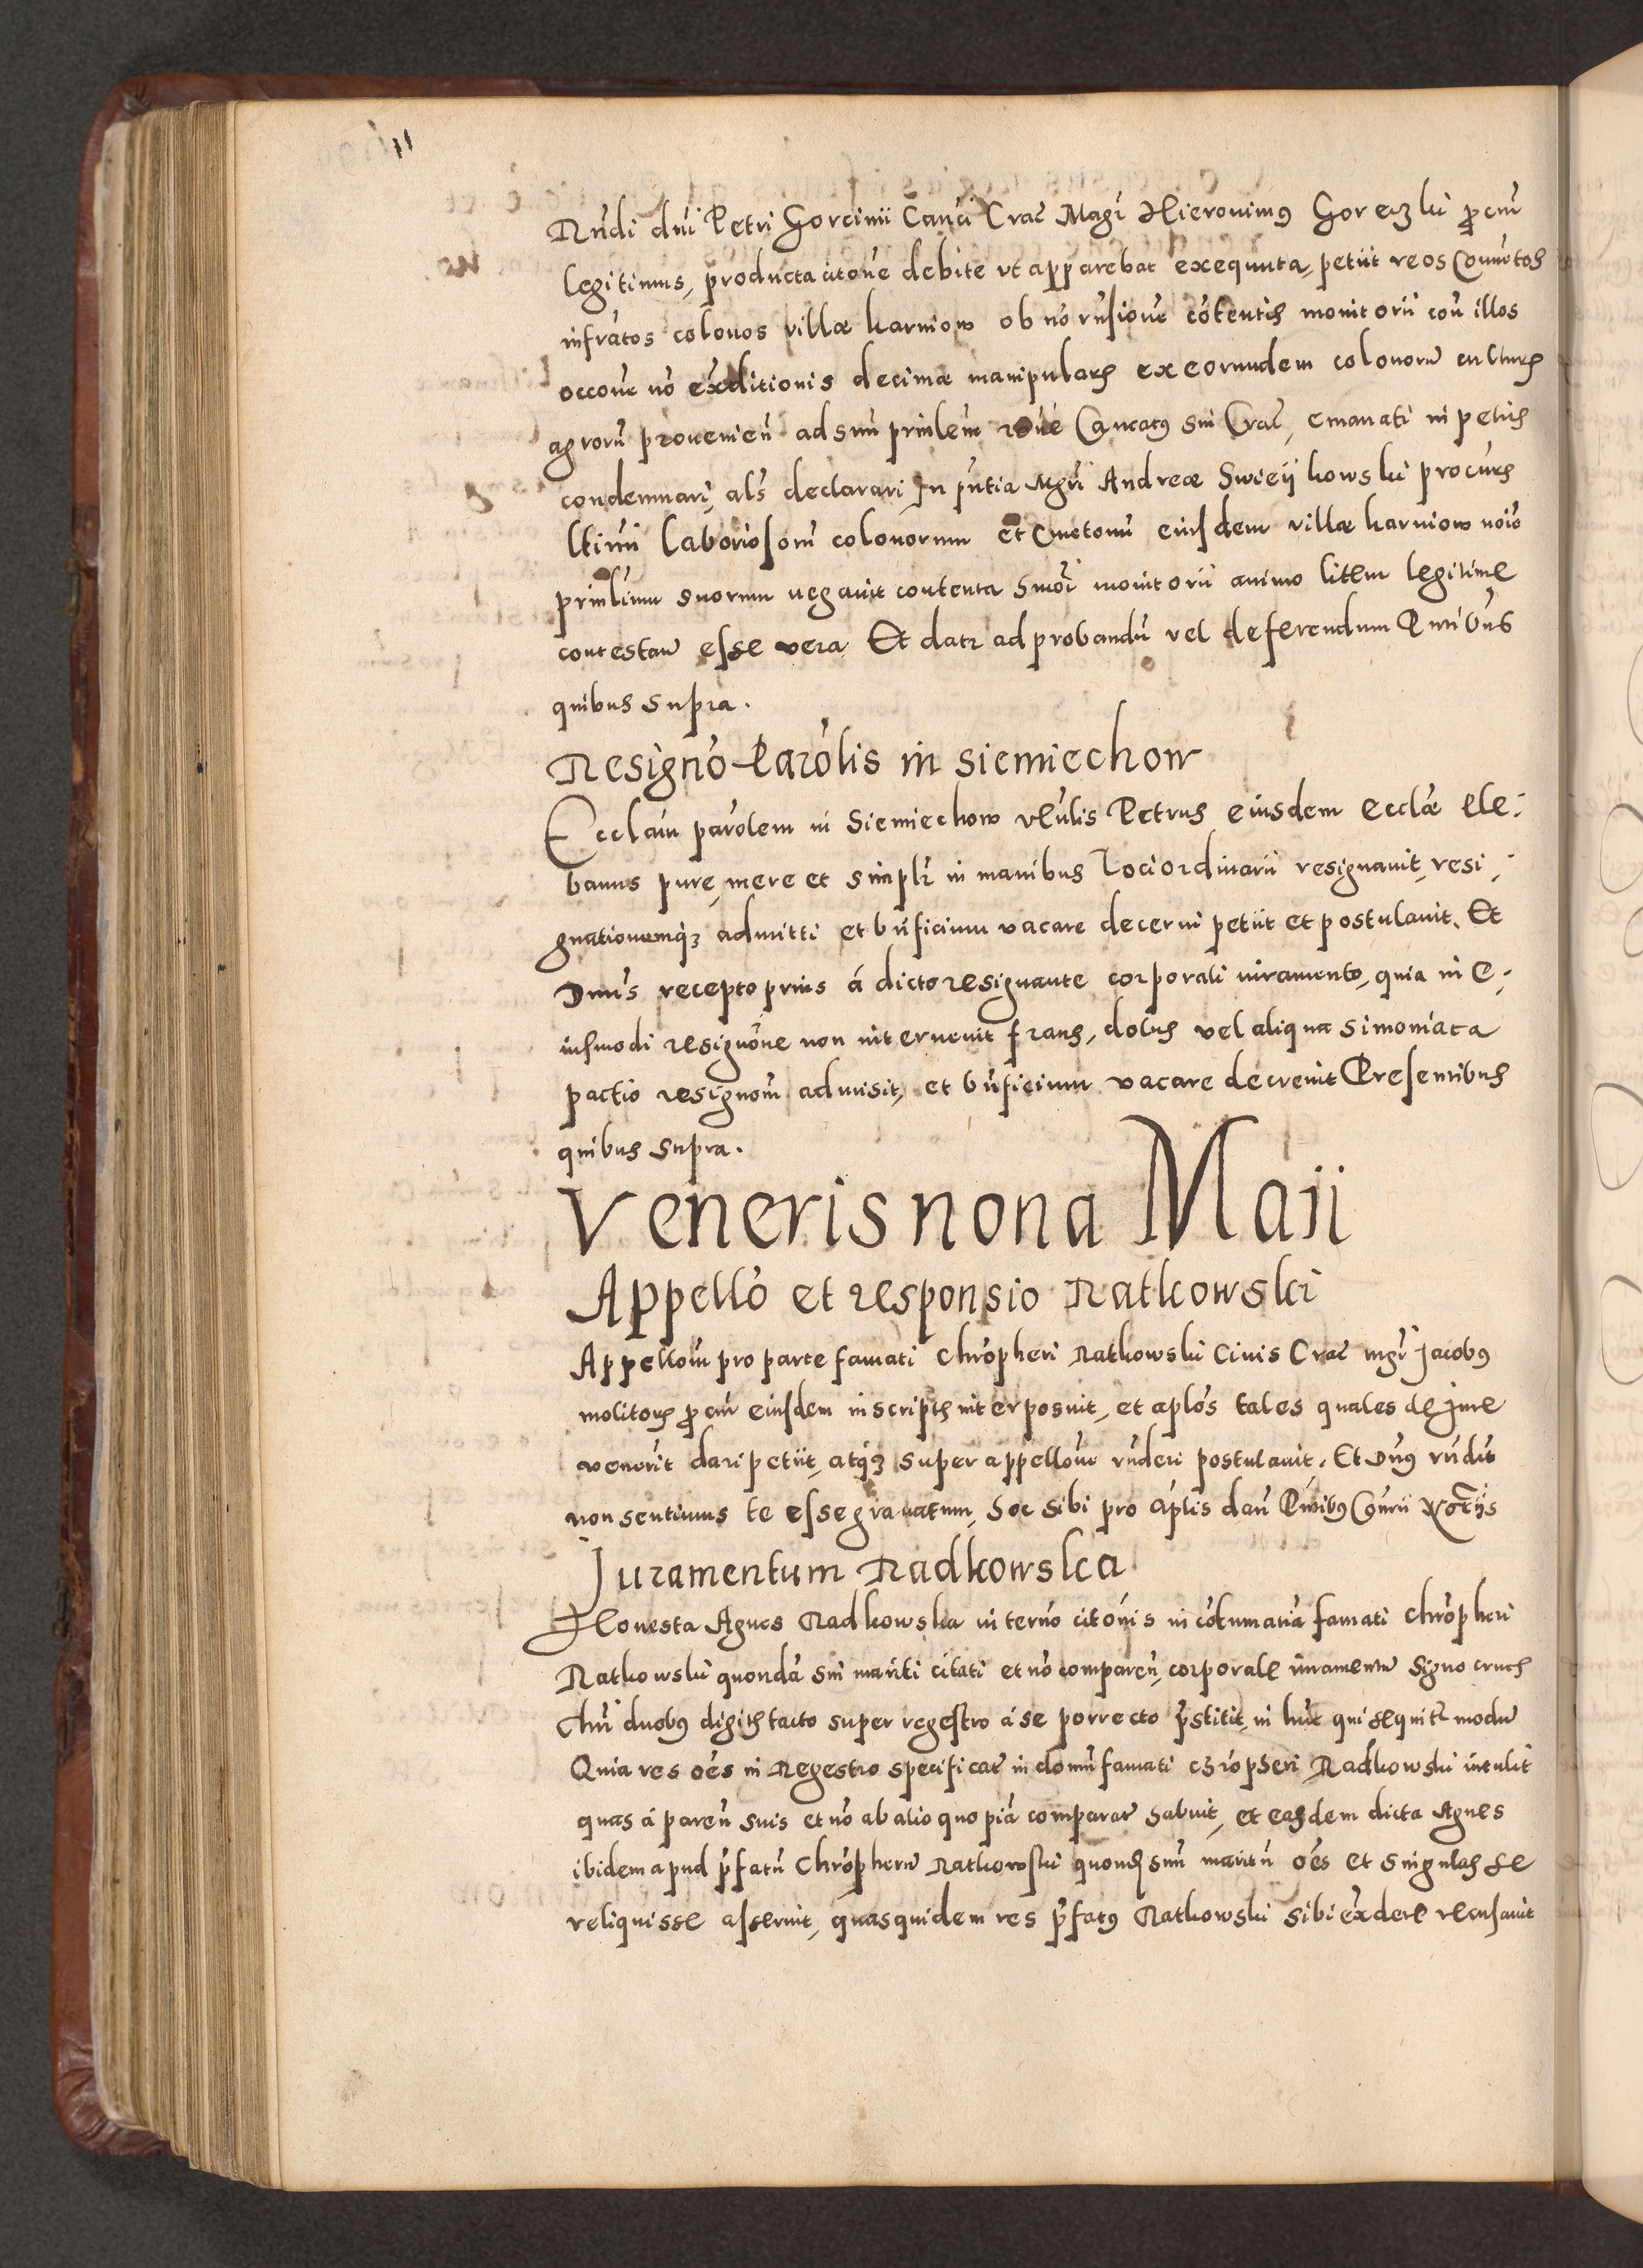 Rndi dni Petri Gorcinii Canci Crac Magr Hieronimus Goreczki procur
legitimus, producta citone debite vt apparebat exequuta, petiit reos Connotos
infratos colonos villæ karniow ob no rnsione cotentis monitorii con illos
occone no exditionis decimæ manipularis ex eorumdem colonoru culturis
agroru prouenien ad sui prinlem rone Cancatus sui Crac, emanati in petitis
condemnari, als declarari, In pntia Mgri Andreæ Swieykowski procuris
ltimi laboriosoru colonorum et Cmetonu eiusdem villæ karniow noie
prinlium suorum negauit contenta smoi monitorii animo litem legitime
contestan esse vera Et datr ad probandu vel deferendum Pntibus
quibus supra.
Resigno Parolis in Siemiechow
Ecclam parolem in Siemiechow vlulis Petrus eiusdem Ecclæ Ple-
banus pure, mere et simplr in manibus Loci ordinarii resignauit, resi-
gnationemqz admitti et bnficium vacare decerni petiit et postulauit. Et
Dnus recepto prius á dicto resignante corporali iuramento, quia in e-
iusmodi resignone non interuenit fraus, dolus vel aliqua simoniaca
pactio resignom admisit, et bnficium vacare decreuit Præsentibus
quibus supra.
Veneris nona Maii
Appello et responsio Ratkowski
Appellom pro parte famati Chropheri Ratkowski Ciuis Crac mgr Jacobus
molitoris procur eiusdem in scriptis interposuit, et aplos tales quales de Jure
venerit dari petiit, atqz super appellone rnderi postulauit. Et Dnus rndit
non sentimus te esse grauatum, hoc sibi pro aplis dan Pntibus Consrii Notrijs
Juramentum Radkowska
Honesta Agnes Radkowska in terno citonis in cotumatia famati Chropheri
Ratkowski quonda sui mariti citati et no comparen, corporale iuramentu signo crucis
Chri duobus digitis tacto super regestro á se porrecto prstitit, in huc qui sequitr modu
Quia res oes in Regestro specificat in domu famati Chropheri Radkowski intulit
quas á paren suis et no ab alio quopia comparat habuit, et easdem dicta Agnes
ibidem apud prfatu Chropheru Ratkowski quond suu maritu oes et singulas se
reliquisse asseruit, quas quidem res prfatus Ratkowski sibi exdere recusauit